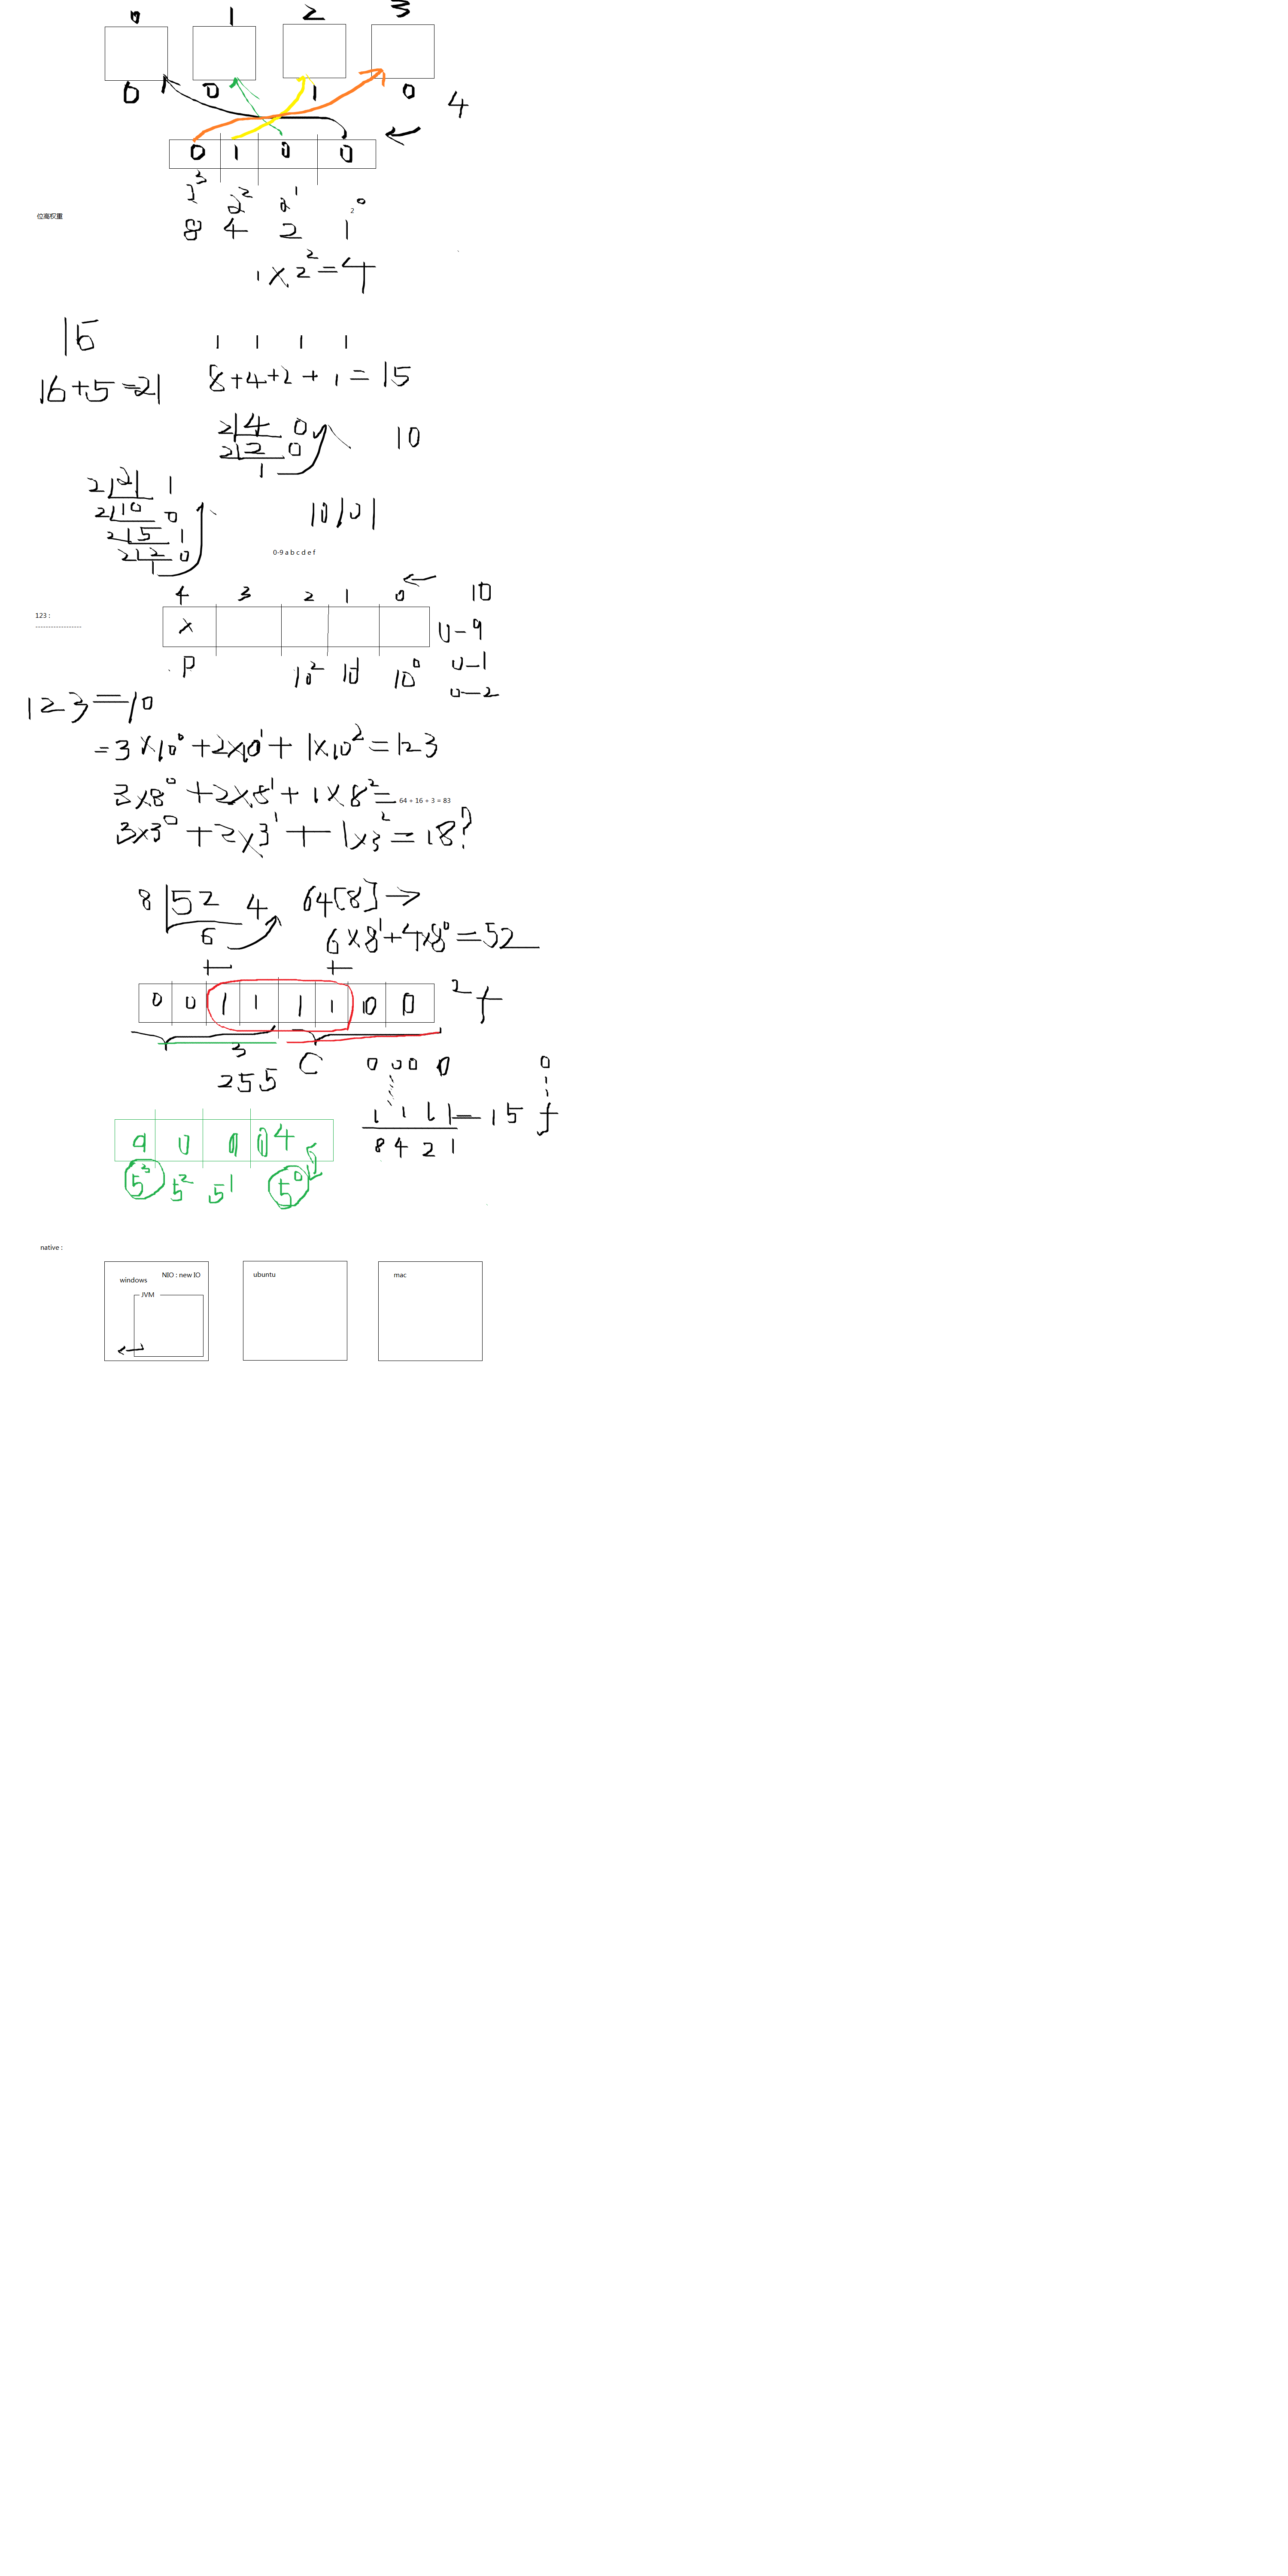 0 1 2 3
0 0 1 0
4
0 1 0 0
2³ 2² 2¹ 2⁰
位高权重
8 4 2 1
1×2²=4
16
1 1 1 1
16+5=21
8+4+2+1=15
2|4 0
2|2 0
1
10
2|21 1
2|10 0
2|5 1
2|2 0
1
10101
0-9 a b c d e f
4 3 2 1 0
10
123 :
-------------------
x
0-9
p
10² 10¹ 10⁰
0-1
0-2
123=10
=3×10⁰+2×10¹+1×10²=123
3×8⁰+2×8¹+1×8²=64 + 16 + 3 = 83
3×3⁰+2×3¹+1×3²=18?
8|52 4
6
64[8]→
6×8¹+4×8⁰=52
0 0 1 1 1 1 0 0
2f
3 C
255
0 0 0 0
0
1 1 1 1=15 f
8 4 2 1
0 0 0 0 4
5³ 5² 5¹ 5⁰
5
native :
windows
NIO : new IO
JVM
ubuntu
mac